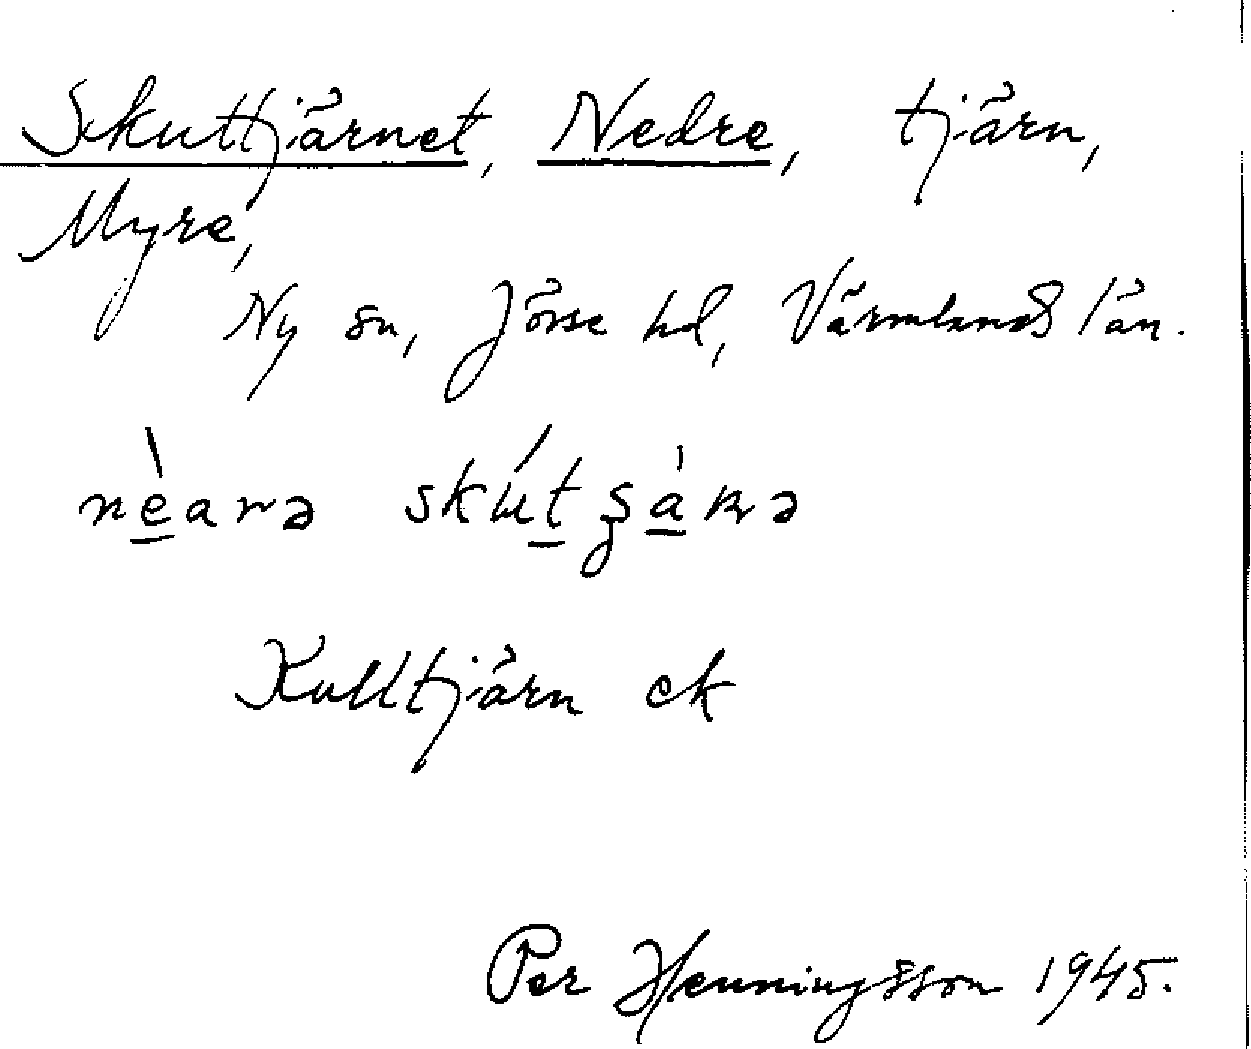 Skuttjärnet, Nedre, tjärn,
Myre,
Ny sn, Jösse hd, Värmlands län.
Kulltjärn ek
Per Henningsson 1945.